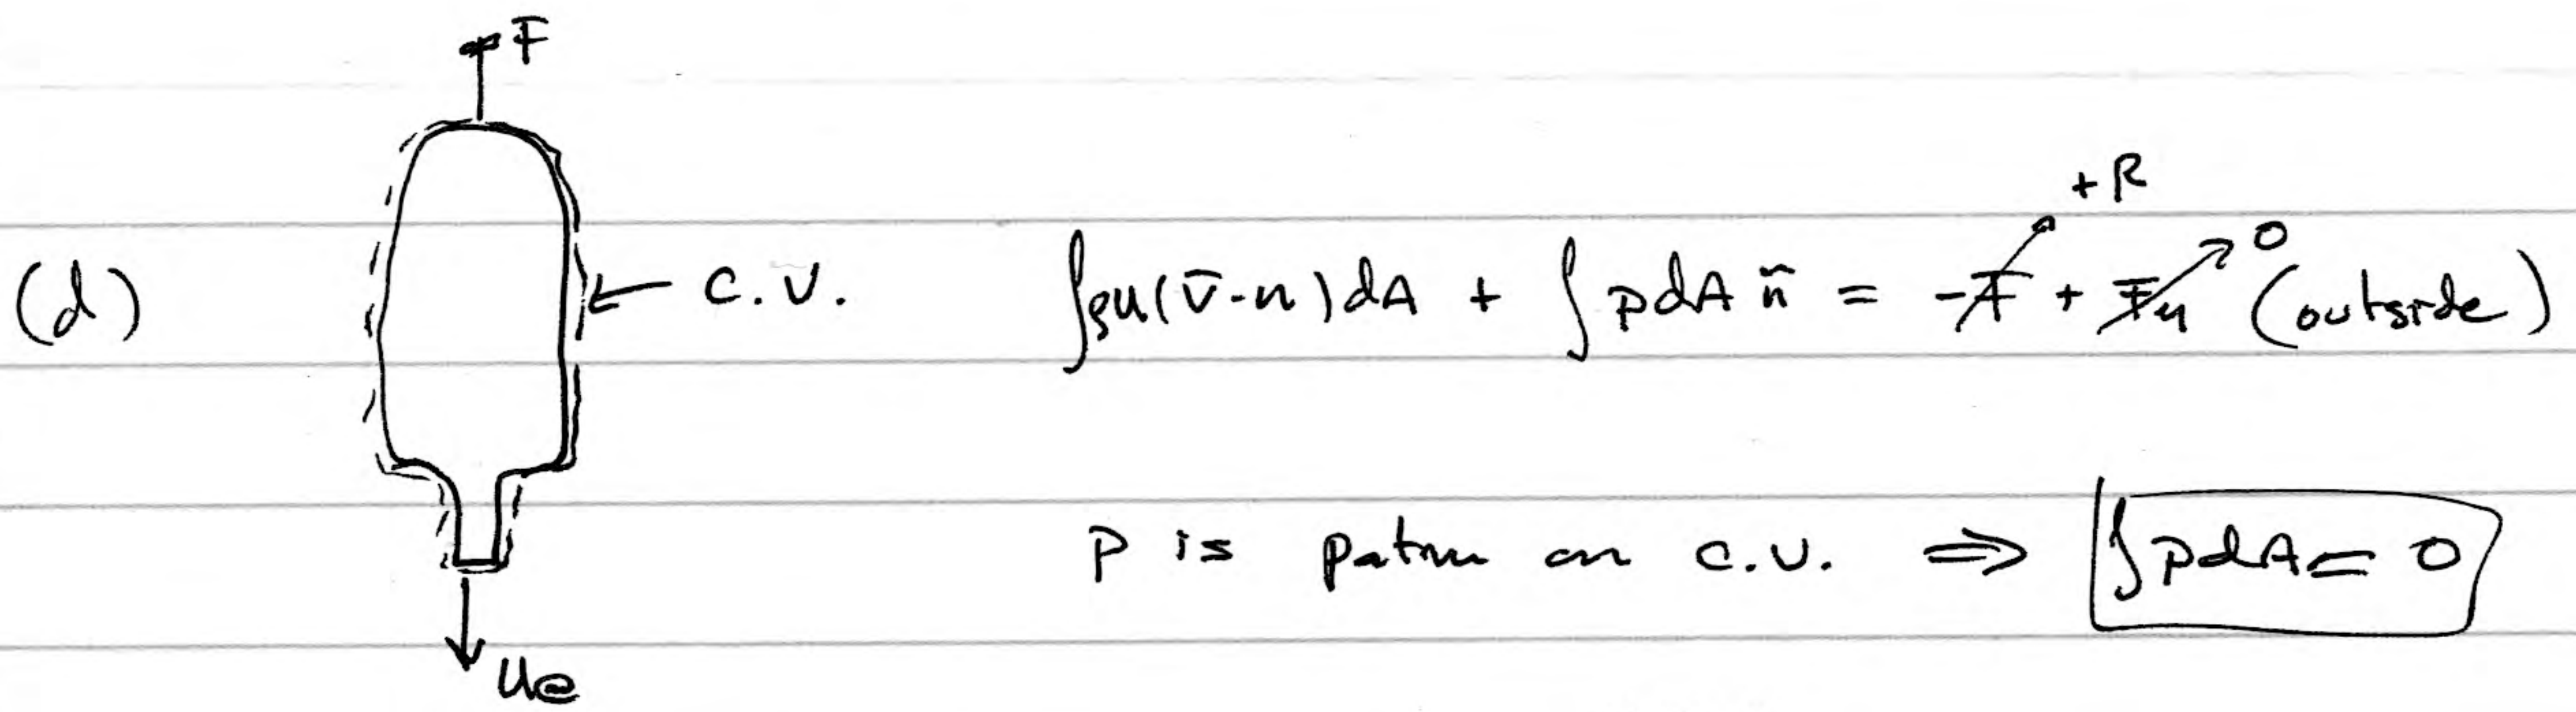 F
+R
(d) ← C.V. ∫ρu(v̄·n)dA + ∫pdA n̄ = -F + Fμ 0 (outside)
P is patm on C.V. ⇒ ∫pdA = 0
ue